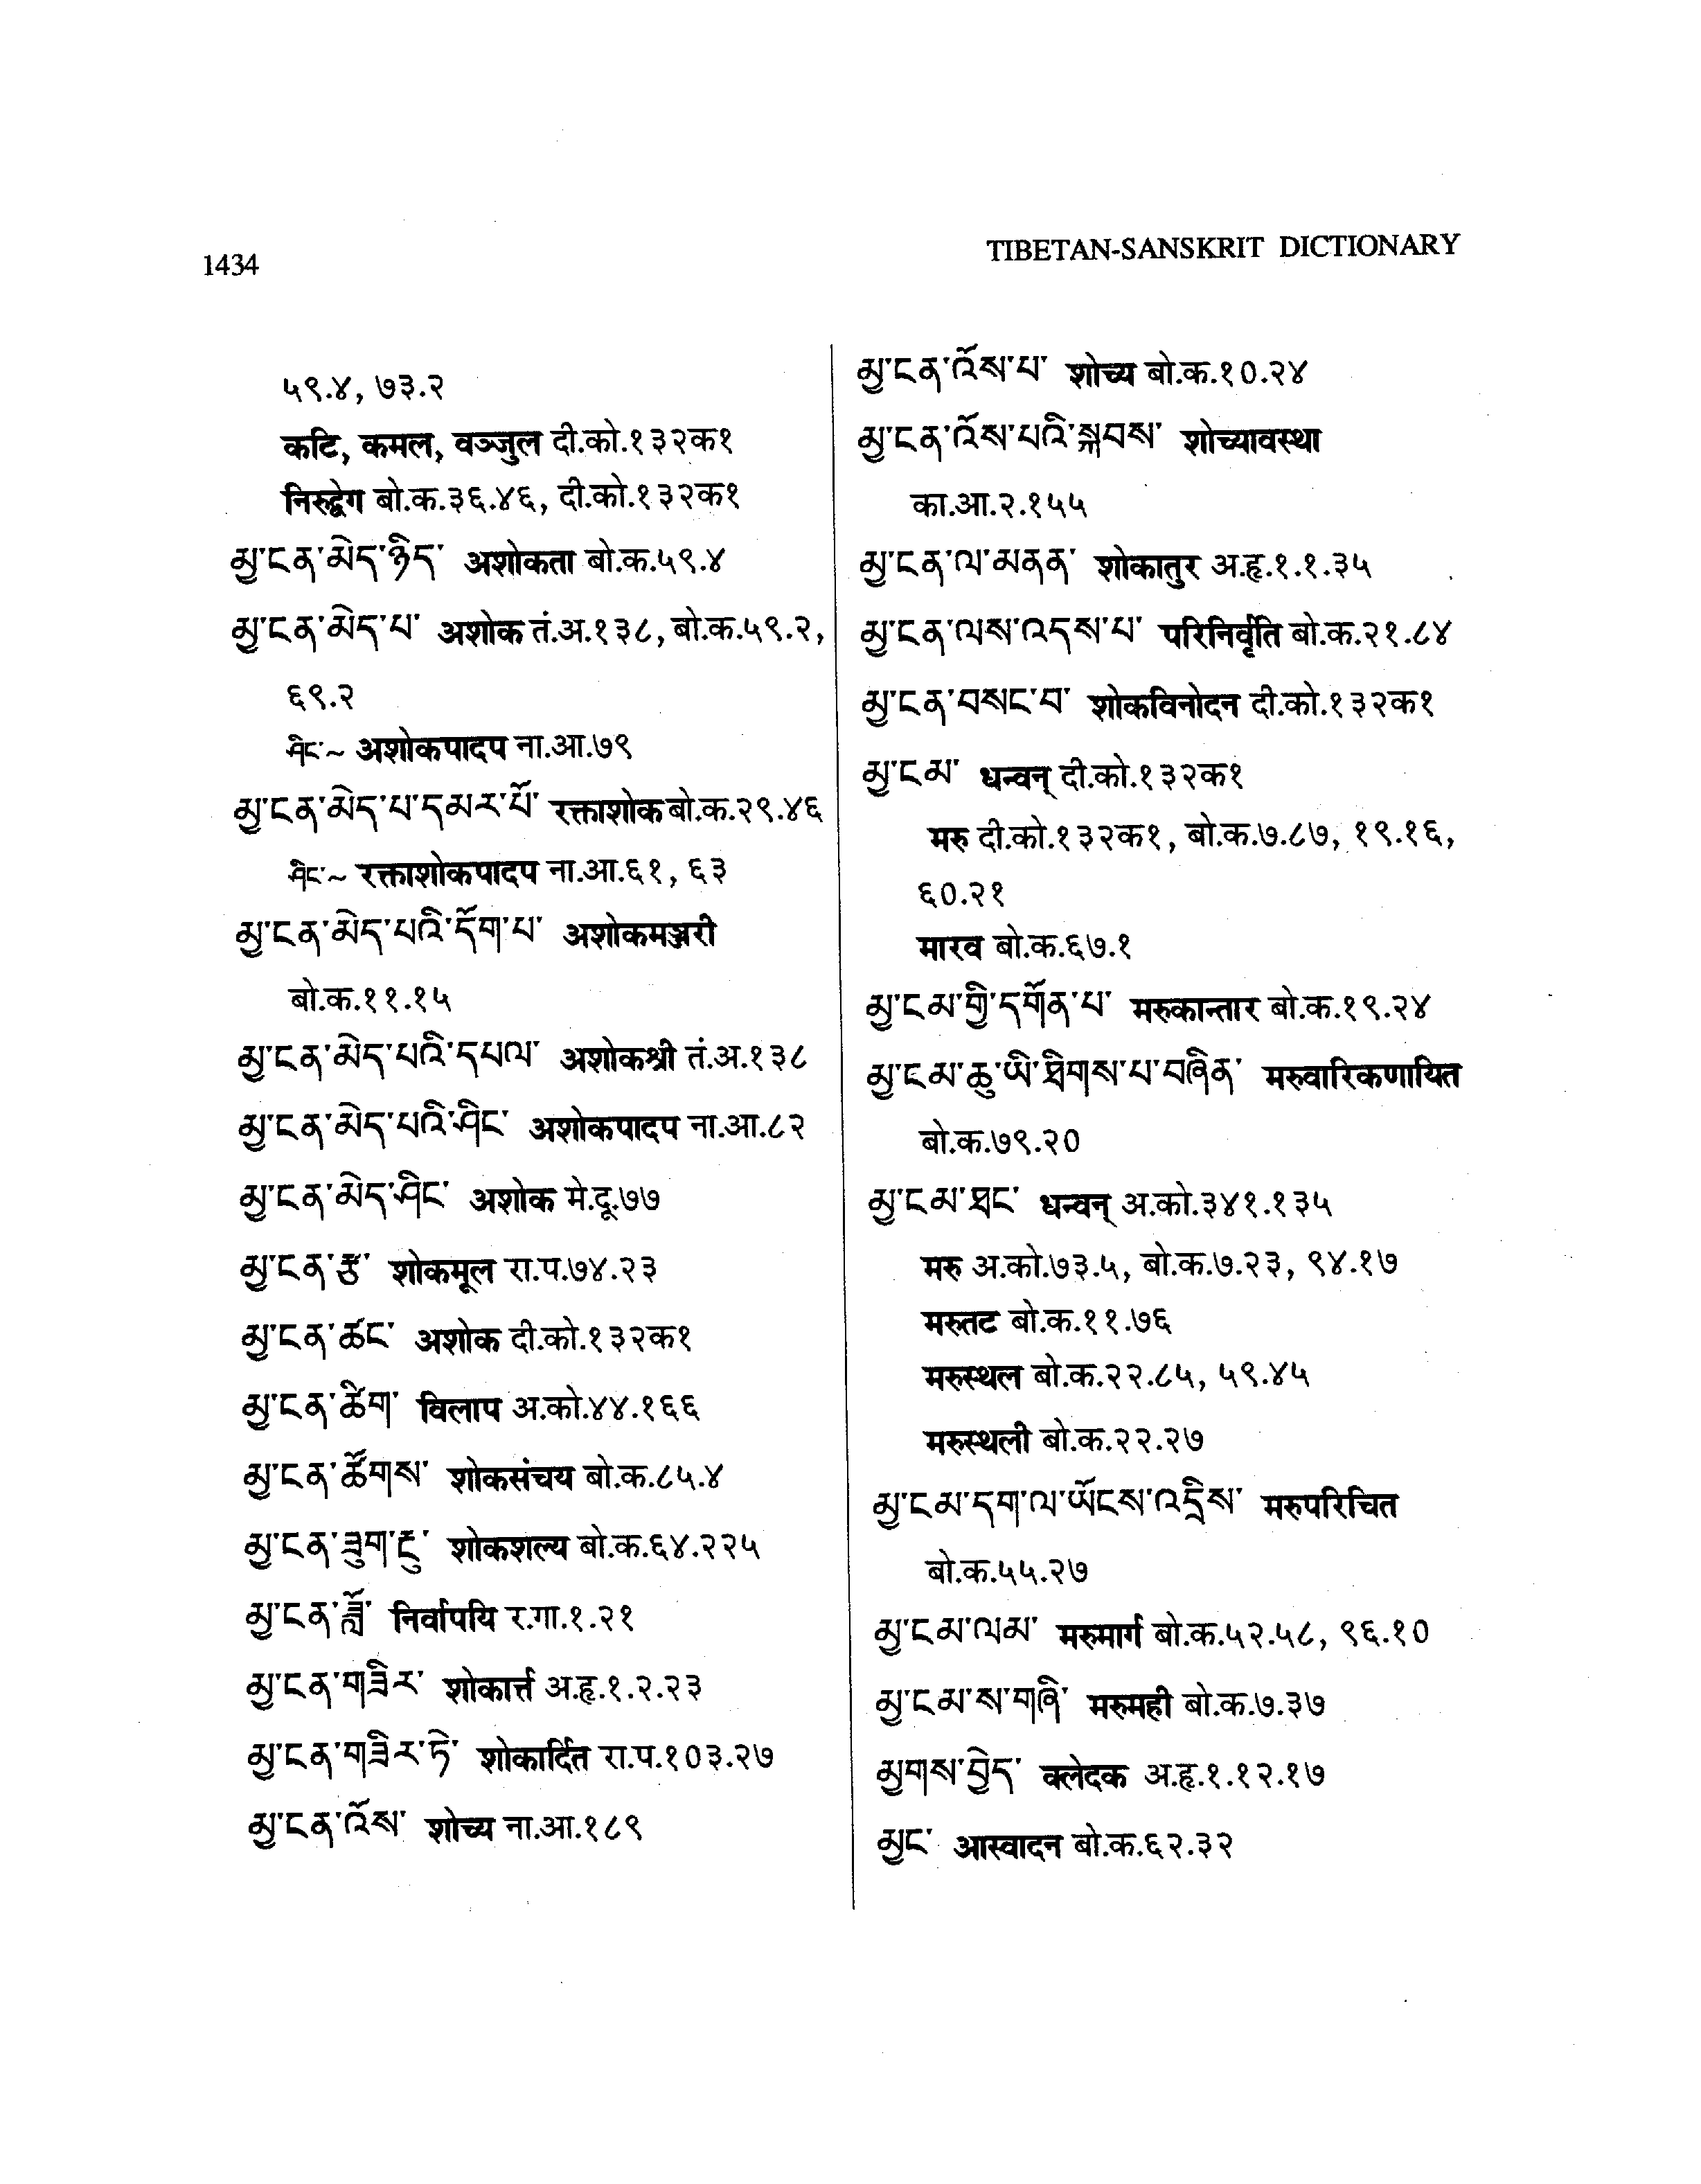 1434
TIBETAN-SANSKRIT DICTIONARY
५९.४, ७३.२
कटि, कमल, वञ्जुल दी.को.१३२क१
निरुद्वेग बो.क.३६.४६, दी.को.१३२क१
མྱ་ངན་མེད་ཉིད་ अशोकता बो.क.५९.४
མྱ་ངན་མེད་པ་ अशोक तं.अ.१३८, बो.क.५९.२,
६९.२
ཤིང་~ अशोकपादप ना.आ.७९
མྱ་ངན་མེད་པ་དམར་པོ་ रक्ताशोक बो.क.२९.४६
ཤིང་~ रक्ताशोकपादप ना.आ.६१, ६३
མྱ་ངན་མེད་པའི་དོག་པ་ अशोकमञ्जरी
बो.क.११.१५
མྱ་ངན་མེད་པའི་དཔལ་ अशोकश्री तं.अ.१३८
མྱ་ངན་མེད་པའི་ཤིང་ अशोकपादप ना.आ.८२
མྱ་ངན་མེད་ཤིང་ अशोक मे.दू.७७
མྱ་ངན་རྩ་ शोकमूल रा.प.७४.२३
མྱ་ངན་ཚང་ अशोक दी.को.१३२क१
མྱ་ངན་ཚིག་ विलाप अ.को.४४.१६६
མྱ་ངན་ཚོགས་ शोकसंचय बो.क.८५.४
མྱ་ངན་ཟུག་རྔུ་ शोकशल्य बो.क.६४.२२५
མྱ་ངན་ཟློ་ निर्वापयि र.गा.१.२१
མྱ་ངན་གཟིར་ शोकार्त्त अ.हृ.१.२.२३
མྱ་ངན་གཟིར་ཏེ་ शोकार्दित रा.प.१०३.२७
མྱ་ངན་འོས་ शोच्य ना.आ.१८९
མྱ་ངན་འོས་པ་ शोच्य बो.क.१०.२४
མྱ་ངན་འོས་པའི་སྐབས་ शोच्यावस्था
का.आ.२.१५५
མྱ་ངན་ལ་མནན་ शोकातुर अ.हृ.१.१.३५
མྱ་ངན་ལས་འདས་པ་ परिनिर्वृति बो.क.२१.८४
མྱ་ངན་བསང་བ་ शोकविनोदन दी.को.१३२क१
མྱ་ངམ་ धन्वन् दी.को.१३२क१
मरु दी.को.१३२क१, बो.क.७.८७, १९.१६,
६०.२१
मारव बो.क.६७.१
མྱ་ངམ་གྱི་དགོན་པ་ मरुकान्तार बो.क.१९.२४
མྱ་ངམ་ཆུ་ཡི་ཐིགས་པ་བཞིན་ मरुवारिकणायित
बो.क.७९.२०
མྱ་ངམ་ཐང་ धन्वन् अ.को.३४१.१३५
मरु अ.को.७३.५, बो.क.७.२३, ९४.१७
मरुतट बो.क.११.७६
मरुस्थल बो.क.२२.८५, ५९.४५
मरुस्थली बो.क.२२.२७
མྱ་ངམ་དག་ལ་ཡོངས་འདྲིས་ मरुपरिचित
बो.क.५५.२७
མྱ་ངམ་ལམ་ मरुमार्ग बो.क.५२.५८, ९६.१०
མྱ་ངམ་ས་གཞི་ मरुमही बो.क.७.३७
མྱགས་བྱེད་ क्लेदक अ.हृ.१.१२.१७
མྱང་ आस्वादन बो.क.६२.३२